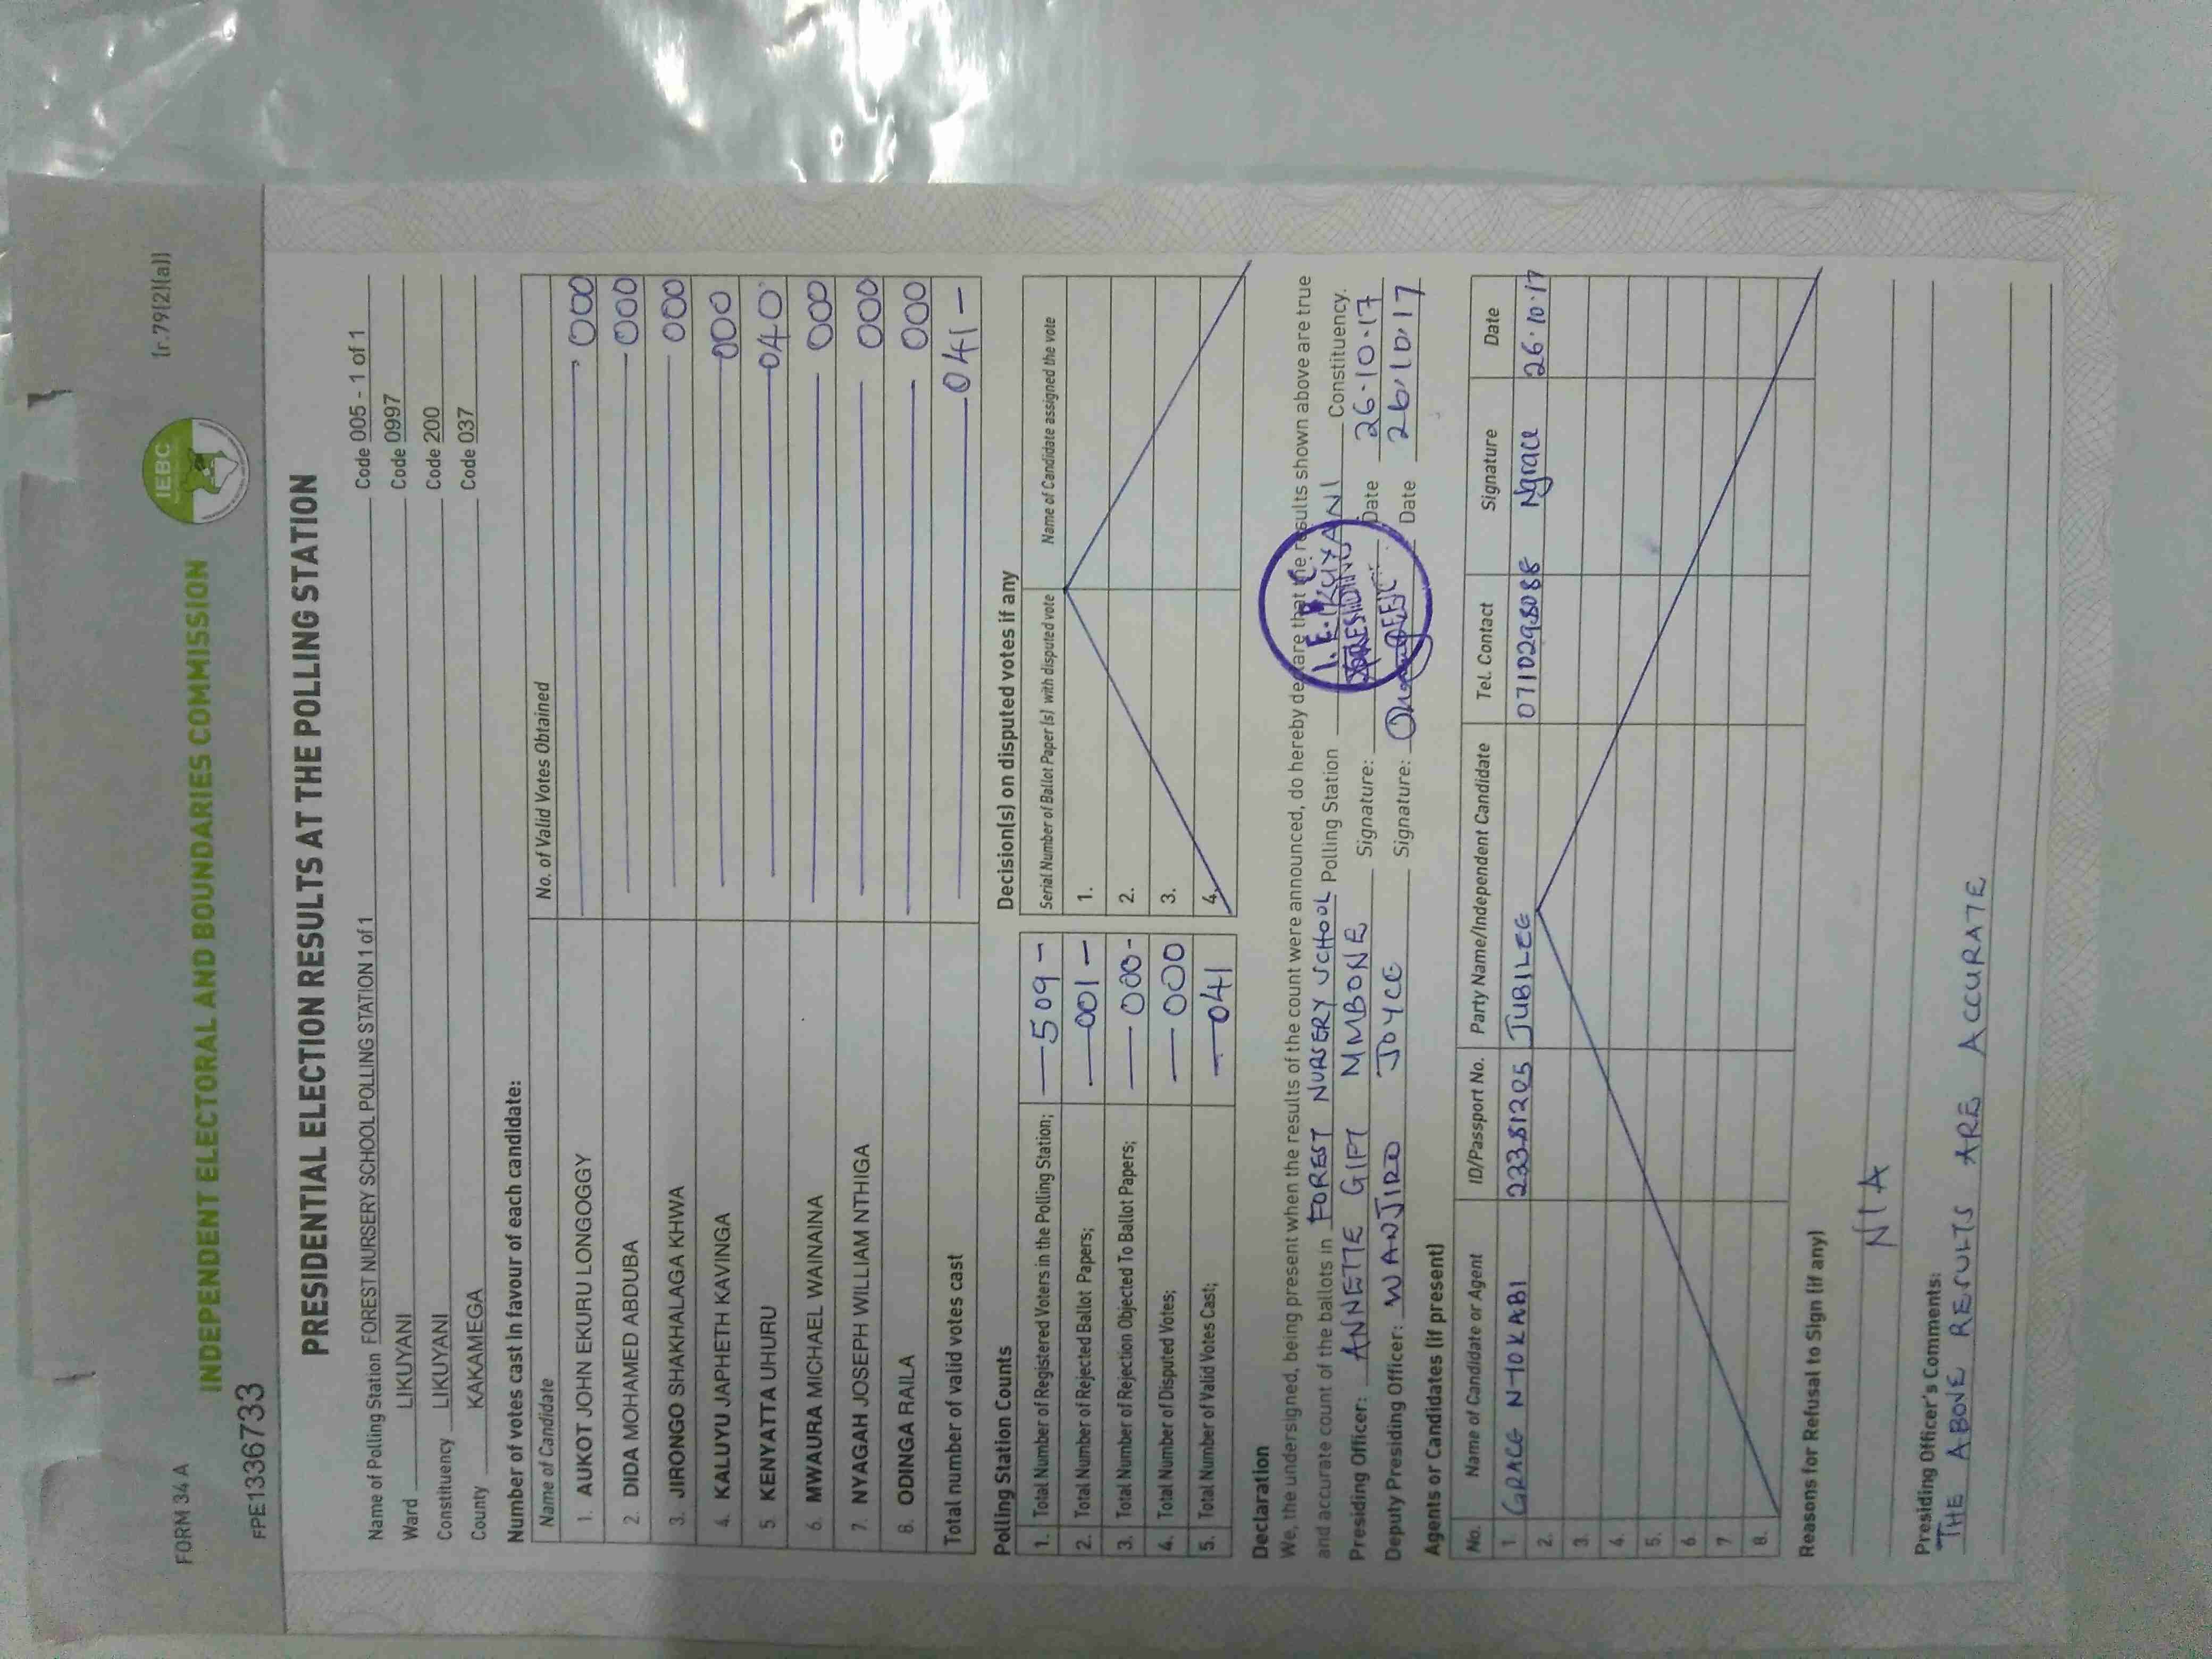 FORM 34 A
(r.79(2)(a))
INDEPENDENT ELECTORAL AND BOUNDARIES COMMISSION
IEBC
FPE1336733
PRESIDENTIAL ELECTION RESULTS AT THE POLLING STATION
Name of Polling Station FOREST NURSERY SCHOOL POLLING STATION 1 of 1 Code 005 - 1 of 1
Ward LIKUYANI Code 0997
Constituency LIKUYANI Code 200
County KAKAMEGA Code 037
Number of votes cast in favour of each candidate:
Name of Candidate No. of Valid Votes Obtained
1. AUKOT JOHN EKURU LONGOGGY 000
2. DIDA MOHAMED ABDUBA 000
3. JIRONGO SHAKHALAGA KHWA 000
4. KALUYU JAPHETH KAVINGA 000
5. KENYATTA UHURU 040
6. MWAURA MICHAEL WAINAINA 000
7. NYAGAH JOSEPH WILLIAM NTHIGA 000
8. ODINGA RAILA 000
Total number of valid votes cast 041 -
Polling Station Counts
1. Total Number of Registered Voters in the Polling Station; 509 -
2. Total Number of Rejected Ballot Papers; 001 -
3. Total Number of Rejection Objected To Ballot Papers; 000 -
4. Total Number of Disputed Votes; 000
5. Total Number of Valid Votes Cast; 041
Decision(s) on disputed votes if any
Serial Number of Ballot Paper (s) with disputed vote Name of Candidate assigned the vote
1.
2.
3.
4.
Declaration
We, the undersigned, being present when the results of the count were announced, do hereby declare that the results shown above are true
and accurate count of the ballots in FOREST NURSERY SCHOOL Polling Station LIKUYANI Constituency.
Presiding Officer: ANNETTE GIFT MMBONE Signature: Date 26.10.17
Deputy Presiding Officer: WANJIRO JOYCE Signature: Date 26/10/17
I.E.B.C.
PRESIDING
Agents or Candidates (if present)
No. Name of Candidate or Agent ID/Passport No. Party Name/Independent Candidate Tel. Contact Signature Date
1. GRACE N-10KABI 22381205 JUBILEE 0710298088 Ngrace 26.10.17
2.
3.
4.
5.
6.
7.
8.
Reasons for Refusal to Sign (if any)
N/A
Presiding Officer's Comments:
THE ABOVE RESULTS ARE ACCURATE